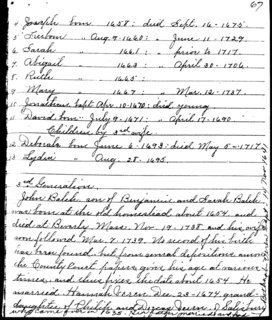 67
4 Joseph born 1658: died Sept. 16-1675.
5 " Aug. 9-1660: " June 11-1729.
6 Sarah " 1661: " prior to 1717.
7 Abigail " 1663: " April 30-1706.
8 Ruth " 1665:
9 Mary " 1667: " Mar. 12-1737.
10 Jonathan bapt. Apr. 10-1670: died young.
11 David born July 9-1671: " April 17-1690.
Children by 3rd wife
12 Deborah born June 6-1693: died May 5-1717
13 Lydia " Aug. 28-1695.
3rd Generation.
John Balch, son of Benjamin and Sarah Balch
was born at the old homestead about 1654 and
died at Beverly Mass. Nov. 19-1738 and his
followed Mar. 7, 1739. No record of his birth
has been found, but from several depositions among
the County Court papers gives his age at various
times, and thus fixes the date about 1654. He
married Hannah Dec. 23-1674 grand
daughter of Philip and Dorcas of Salisbury
who came over in 1635